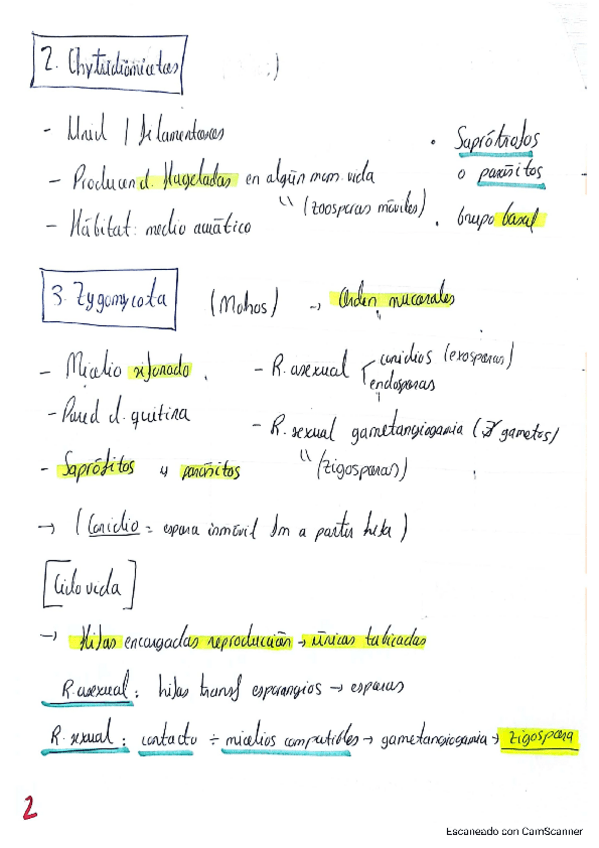 2. Chytridiomicotas
- Unicel / filamentosos
- Producen d. flageladas en algún mom. vida
(zoosporas móviles)
- Hábitat: medio acuático
• Saprótrofos
o parásitos
• Grupo basal
3. Zygomycota (Mohos) → Orden mucorales
- Micelio sifonado
- Pared d. quitina
- Saprófitos y parásitos
- R. asexual conidios (exosporas)
endosporas
- R. sexual gametangiogamia (∄ gametos)
(zigosporas)
→ (Conidio = espora inmóvil fm a partir hifa)
[Ciclo vida]
→ Hifas encargadas reproducción → únicas tabicadas
R. asexual: hifas transf esporangios → esporas
R. sexual: contacto ÷ micelios compatibles → gametangiogamia → zigospora
2
Escaneado con CamScanner